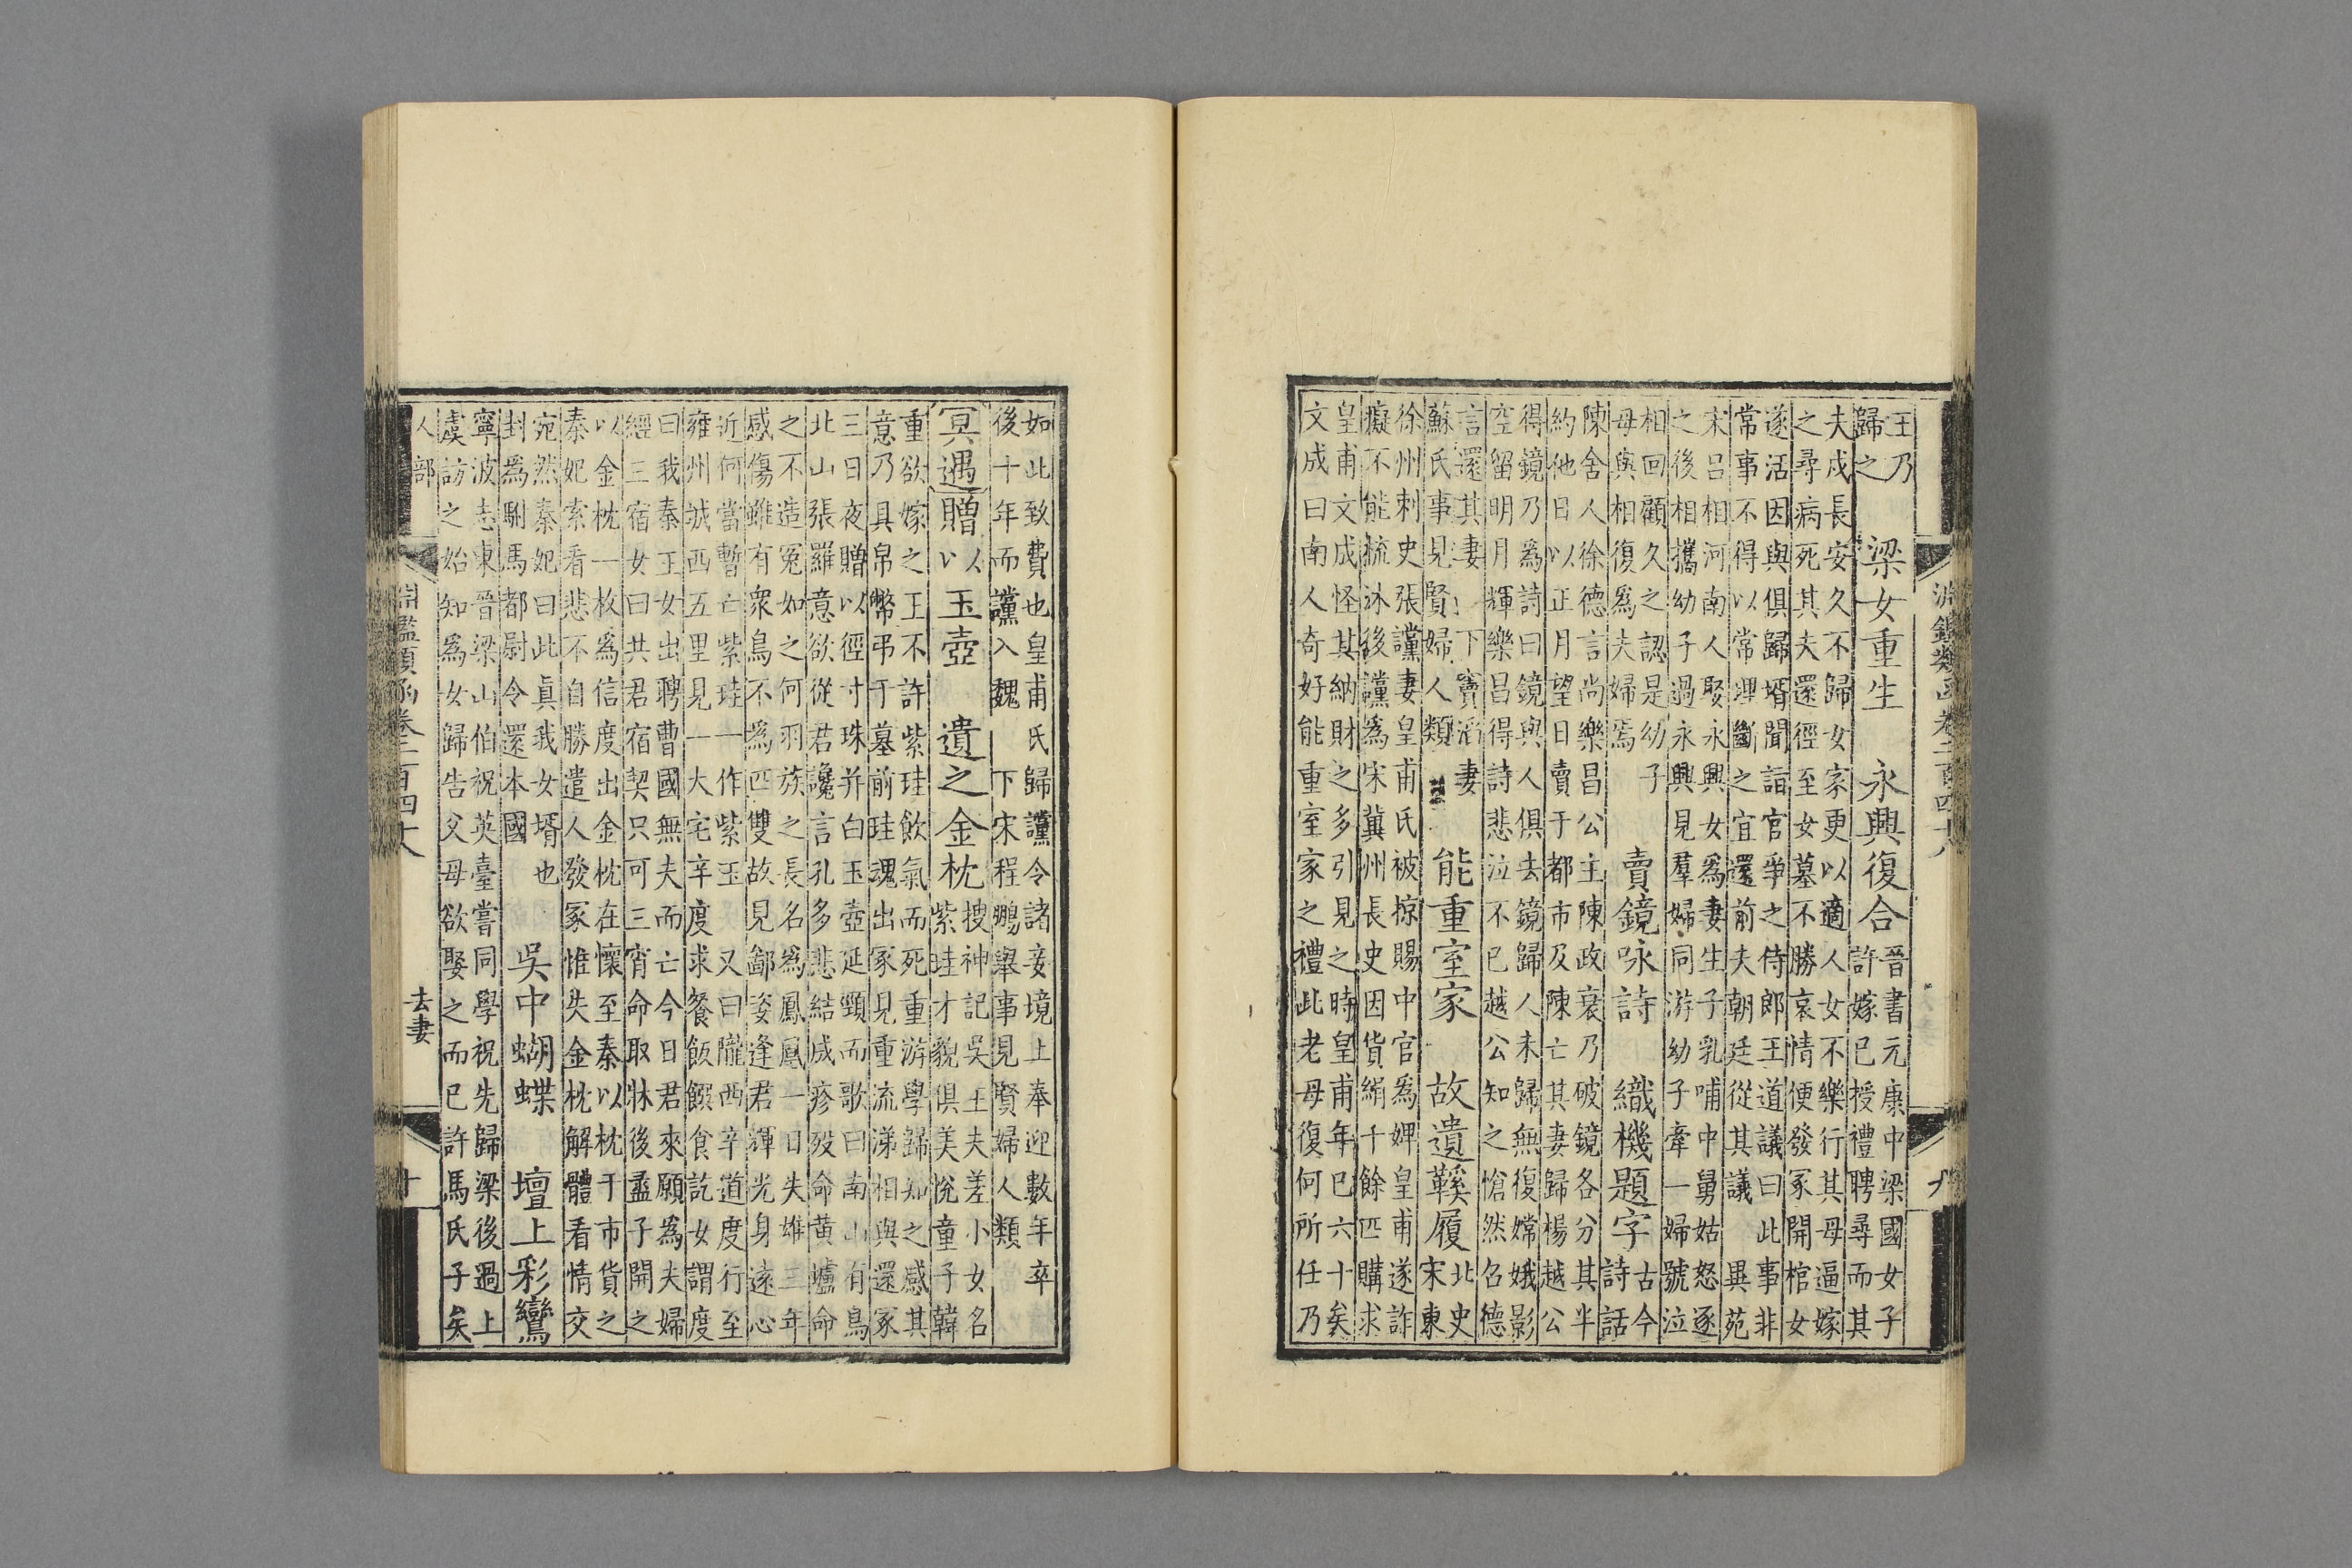 淵鑑類函卷二百四十八 九
王乃
歸之
梁女重生 永興復合
晉書元康中梁國女子
許嫁已授禮聘尋而其
夫戍長安久不歸女家更以適人女不樂行其母逼嫁
之尋病死其夫還徑至女墓不勝哀情便發冢開棺女
遂活因與俱歸壻聞詣官爭之侍郎王道議曰此事非
常事不得以常理斷之宜還前夫朝廷從其議 異苑
宋呂相相河南人娶永興女爲妻生子乳哺中舅姑怒逐
之後相攜幼子過永興見羣婦同游幼子牽一婦號泣
相回顧久之認是幼子
母與相復爲夫婦焉
賣鏡咏詩 織機題字
古今
詩話
陳舍人徐德言尚樂昌公主陳政衰乃破鏡各分其半
約他日以正月望日賣于都市及陳亡其妻歸楊越公
得鏡乃爲詩曰鏡與人俱去鏡歸人未歸無復嫦娥影
空留明月輝樂昌得詩悲泣不已越公知之愴然召德
言還其妻 下竇滔妻
蘇氏事見賢婦人類
能重室家 故遺鞵履
北史
宋東
徐州刺史張讜妻皇甫氏被掠賜中官爲婢皇甫遂詐
癡不能梳沐後讜爲宋冀州長史因貨絹千餘匹購求
皇甫文成怪其納財之多引見之時皇甫年已六十矣
文成曰南人奇好能重室家之禮此老母復何所任乃
如此致費也皇甫氏歸讜令諸妾境上奉迎數年卒
後十年而讜入魏 下宋程鵬舉事見賢婦人類
冥遇
贈以玉壺 遺之金枕
搜神記吳王夫差小女名
紫珪才貌俱美悅童子韓
重欲嫁之王不許紫珪飲氣而死重游學歸知之感其
意乃具帛幣弔于墓前珪魂出冢見重流涕相與還冢
三日夜贈以徑寸珠并白玉壺延頸而歌曰南山有鳥
北山張羅意欲從君讒言孔多悲結成疹歿命黃壚命
之不造冤如之何羽族之長名爲鳳凰一日失雄三年
感傷雖有衆鳥不爲匹雙故見鄙姿逢君輝光身遠心
近何當暫亡紫珪一作紫玉 又曰隴西辛道度行至
雍州城西五里見一大宅辛度求餐飯饌食訖女謂度
曰我秦王女出聘曹國無夫而亡今日君來願爲夫婦
經三宿女曰共君宿契只可三宵命取牀後盝子開之
以金枕一枚爲信度出金枕在懷至秦以枕于市貨之
秦妃索看悲不自勝遣人發冢惟失金枕解體看情交
宛然秦妃曰此眞我女壻也
封爲駙馬都尉令還本國
吳中蝴蝶 壇上彩鸞
寧波志東晉梁山伯祝英臺嘗同學祝先歸梁後過上
虞訪之始知爲女歸告父母欲娶之而已許馬氏子矣
人部 淵鑑類函卷二百四十八 去妻 十